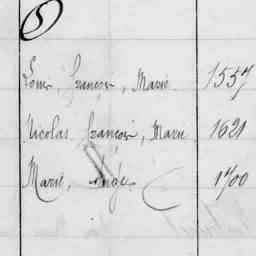 5
Louis, François, Marie. 1557
Nicolas, François, Marie, 1621
Marie, Ange 1700